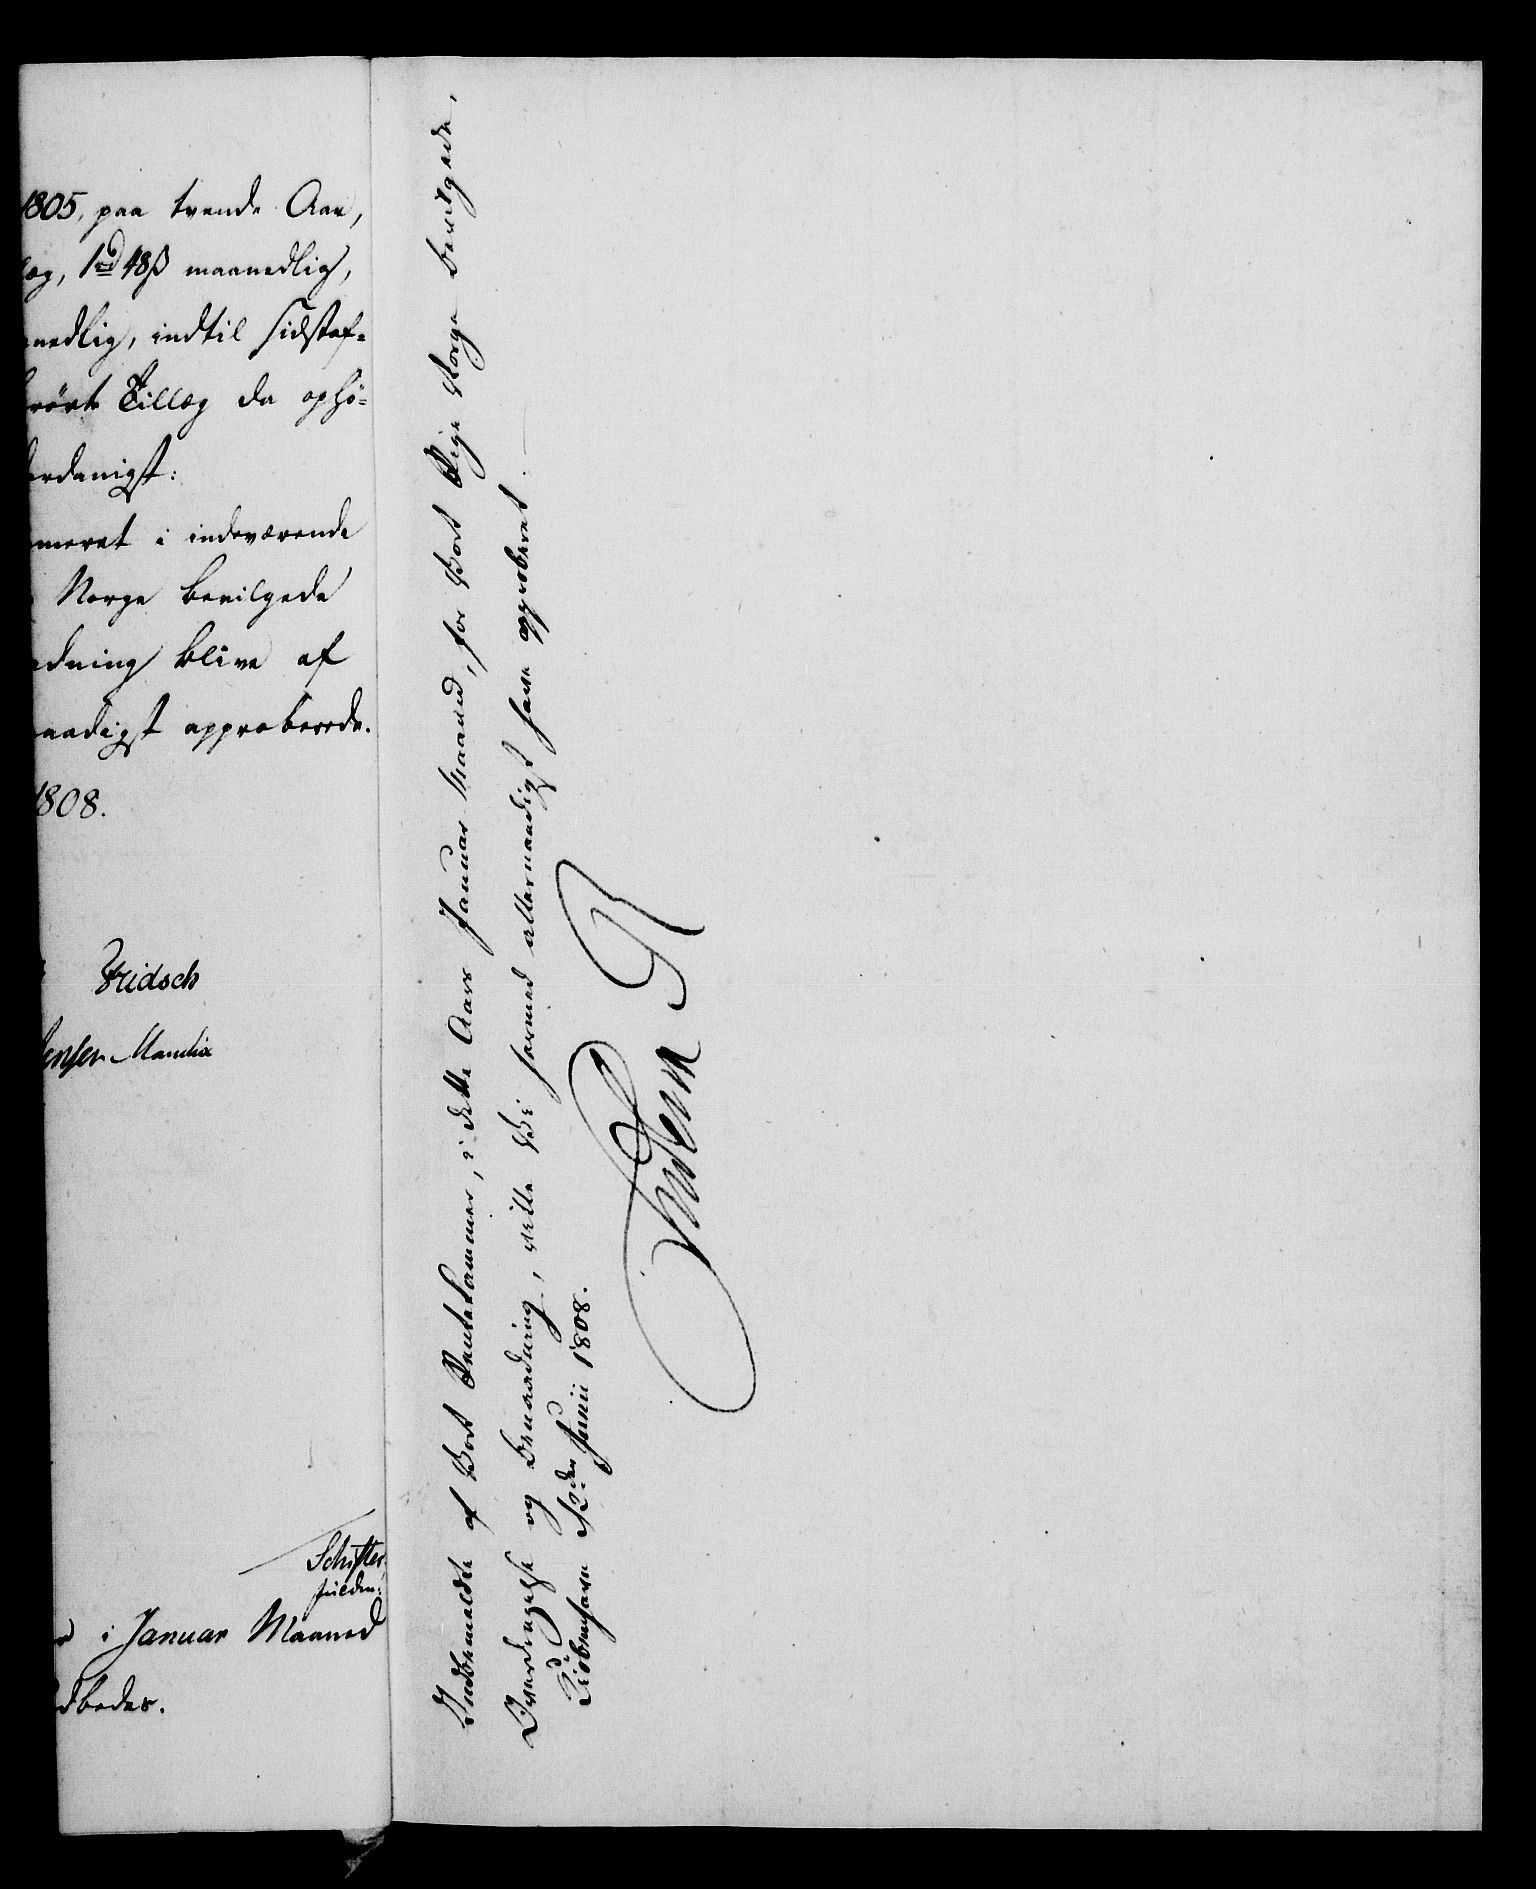 1805, paa tvende Aar,
læg, 1 rd 48 ß maanedlig,
nedlig, indtil Sidstaf=
rørte Tillæg da ophö=
erdanigst:
meret i indeværende
Norge bevilgede
adning blive af
aadigst approberede.
1808.
Fridsch
Jensen Manthix
Schiøtter
i Januar Maaned
dbedes.
Indbemeldte af Vort Rentekammer, i dette Aars Januar Maaned, for Vort Rige Norge bevilgede,
Overdragelse og Benaadning, ville Vi hermed allernaadigst have approberet.
Kiöbenhavn 12den Junii 1808.
Frederik R